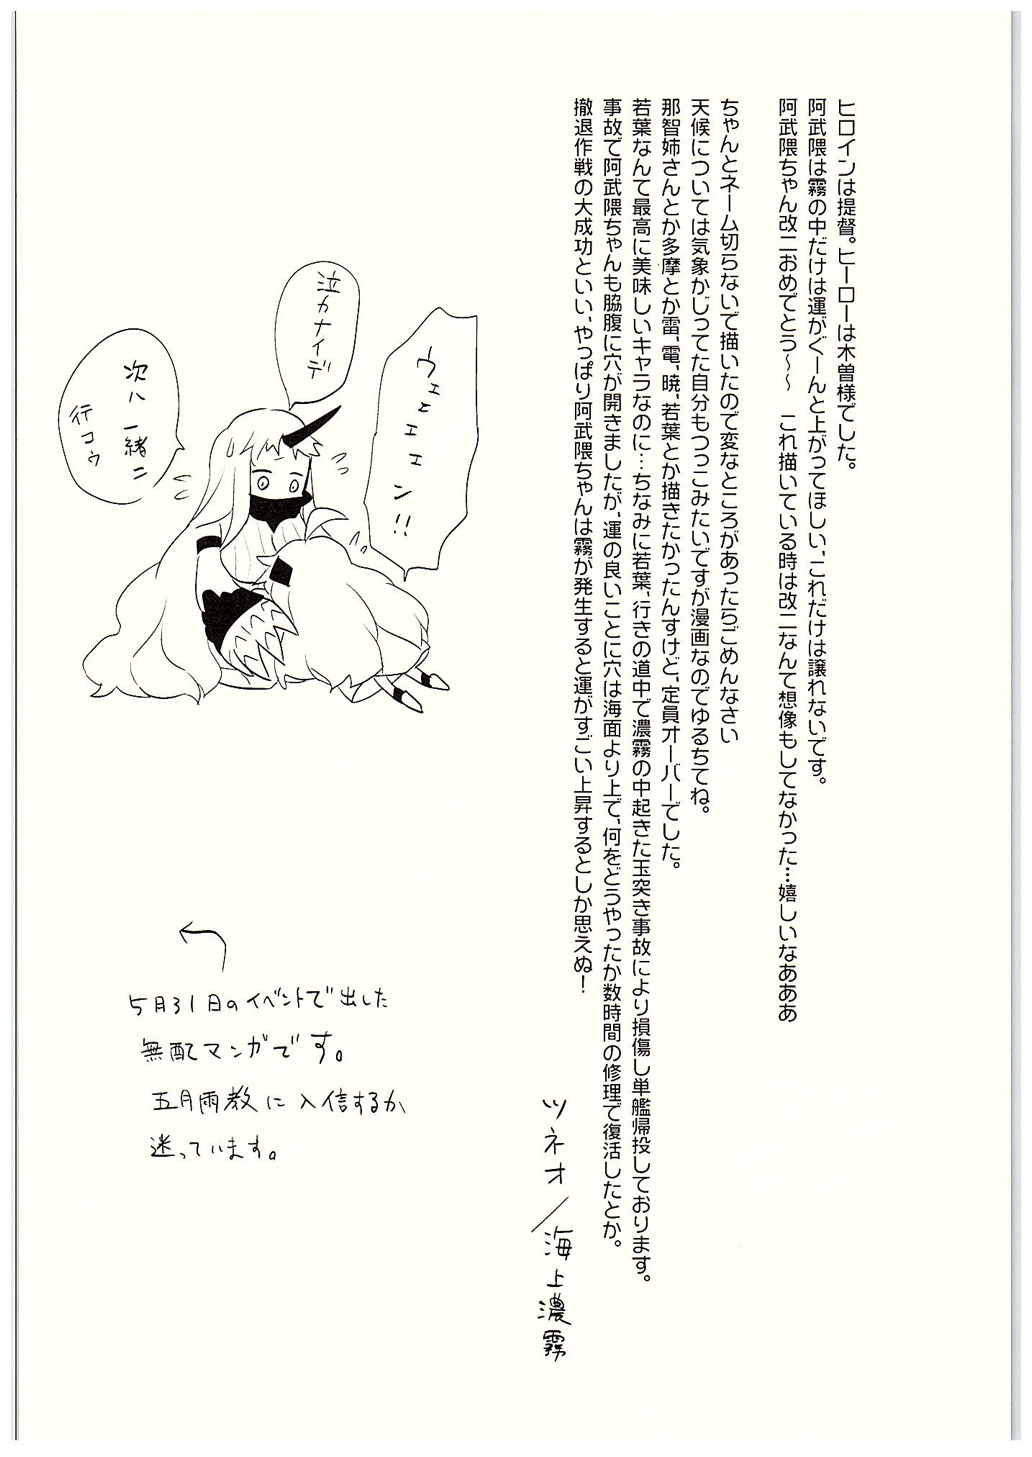 ヒロインは提督。ヒーローは木曽様でした。
阿武隈は霧の中だけは運がぐーんと上がってほしい、これだけは譲れないです。
阿武隈ちゃん改二おめでとう～～　これ描いている時は改二なんて想像もしてなかった…嬉しいなあああ
ちゃんとネーム切らないで描いたので変なところがあったらごめんなさい
天候については気象かじってた自分もつっこみたいですが漫画なのでゆるちてね。
那智姉さんとか多摩とか雷、電、暁、若葉とか描きたかったんすけど、定員オーバーでした。
若葉なんて最高に美味しいキャラなのに…ちなみに若葉、行きの道中で濃霧の中起きた玉突き事故により損傷し単艦帰投しております。
事故で阿武隈ちゃんも脇腹に穴が開きましたが、運の良いことに穴は海面より上で、何をどうやったか数時間の修理で復活したとか。
撤退作戦の大成功といい、やっぱり阿武隈ちゃんは霧が発生すると運がすごい上昇するとしか思えぬ！
ツネオ／海上濃霧
ウェェェェン!!
泣カナイデ
次ハ一緒ニ
行コウ
5月31日のイベントで出した
無配マンガです。
五月雨教に入信するか
迷っています。